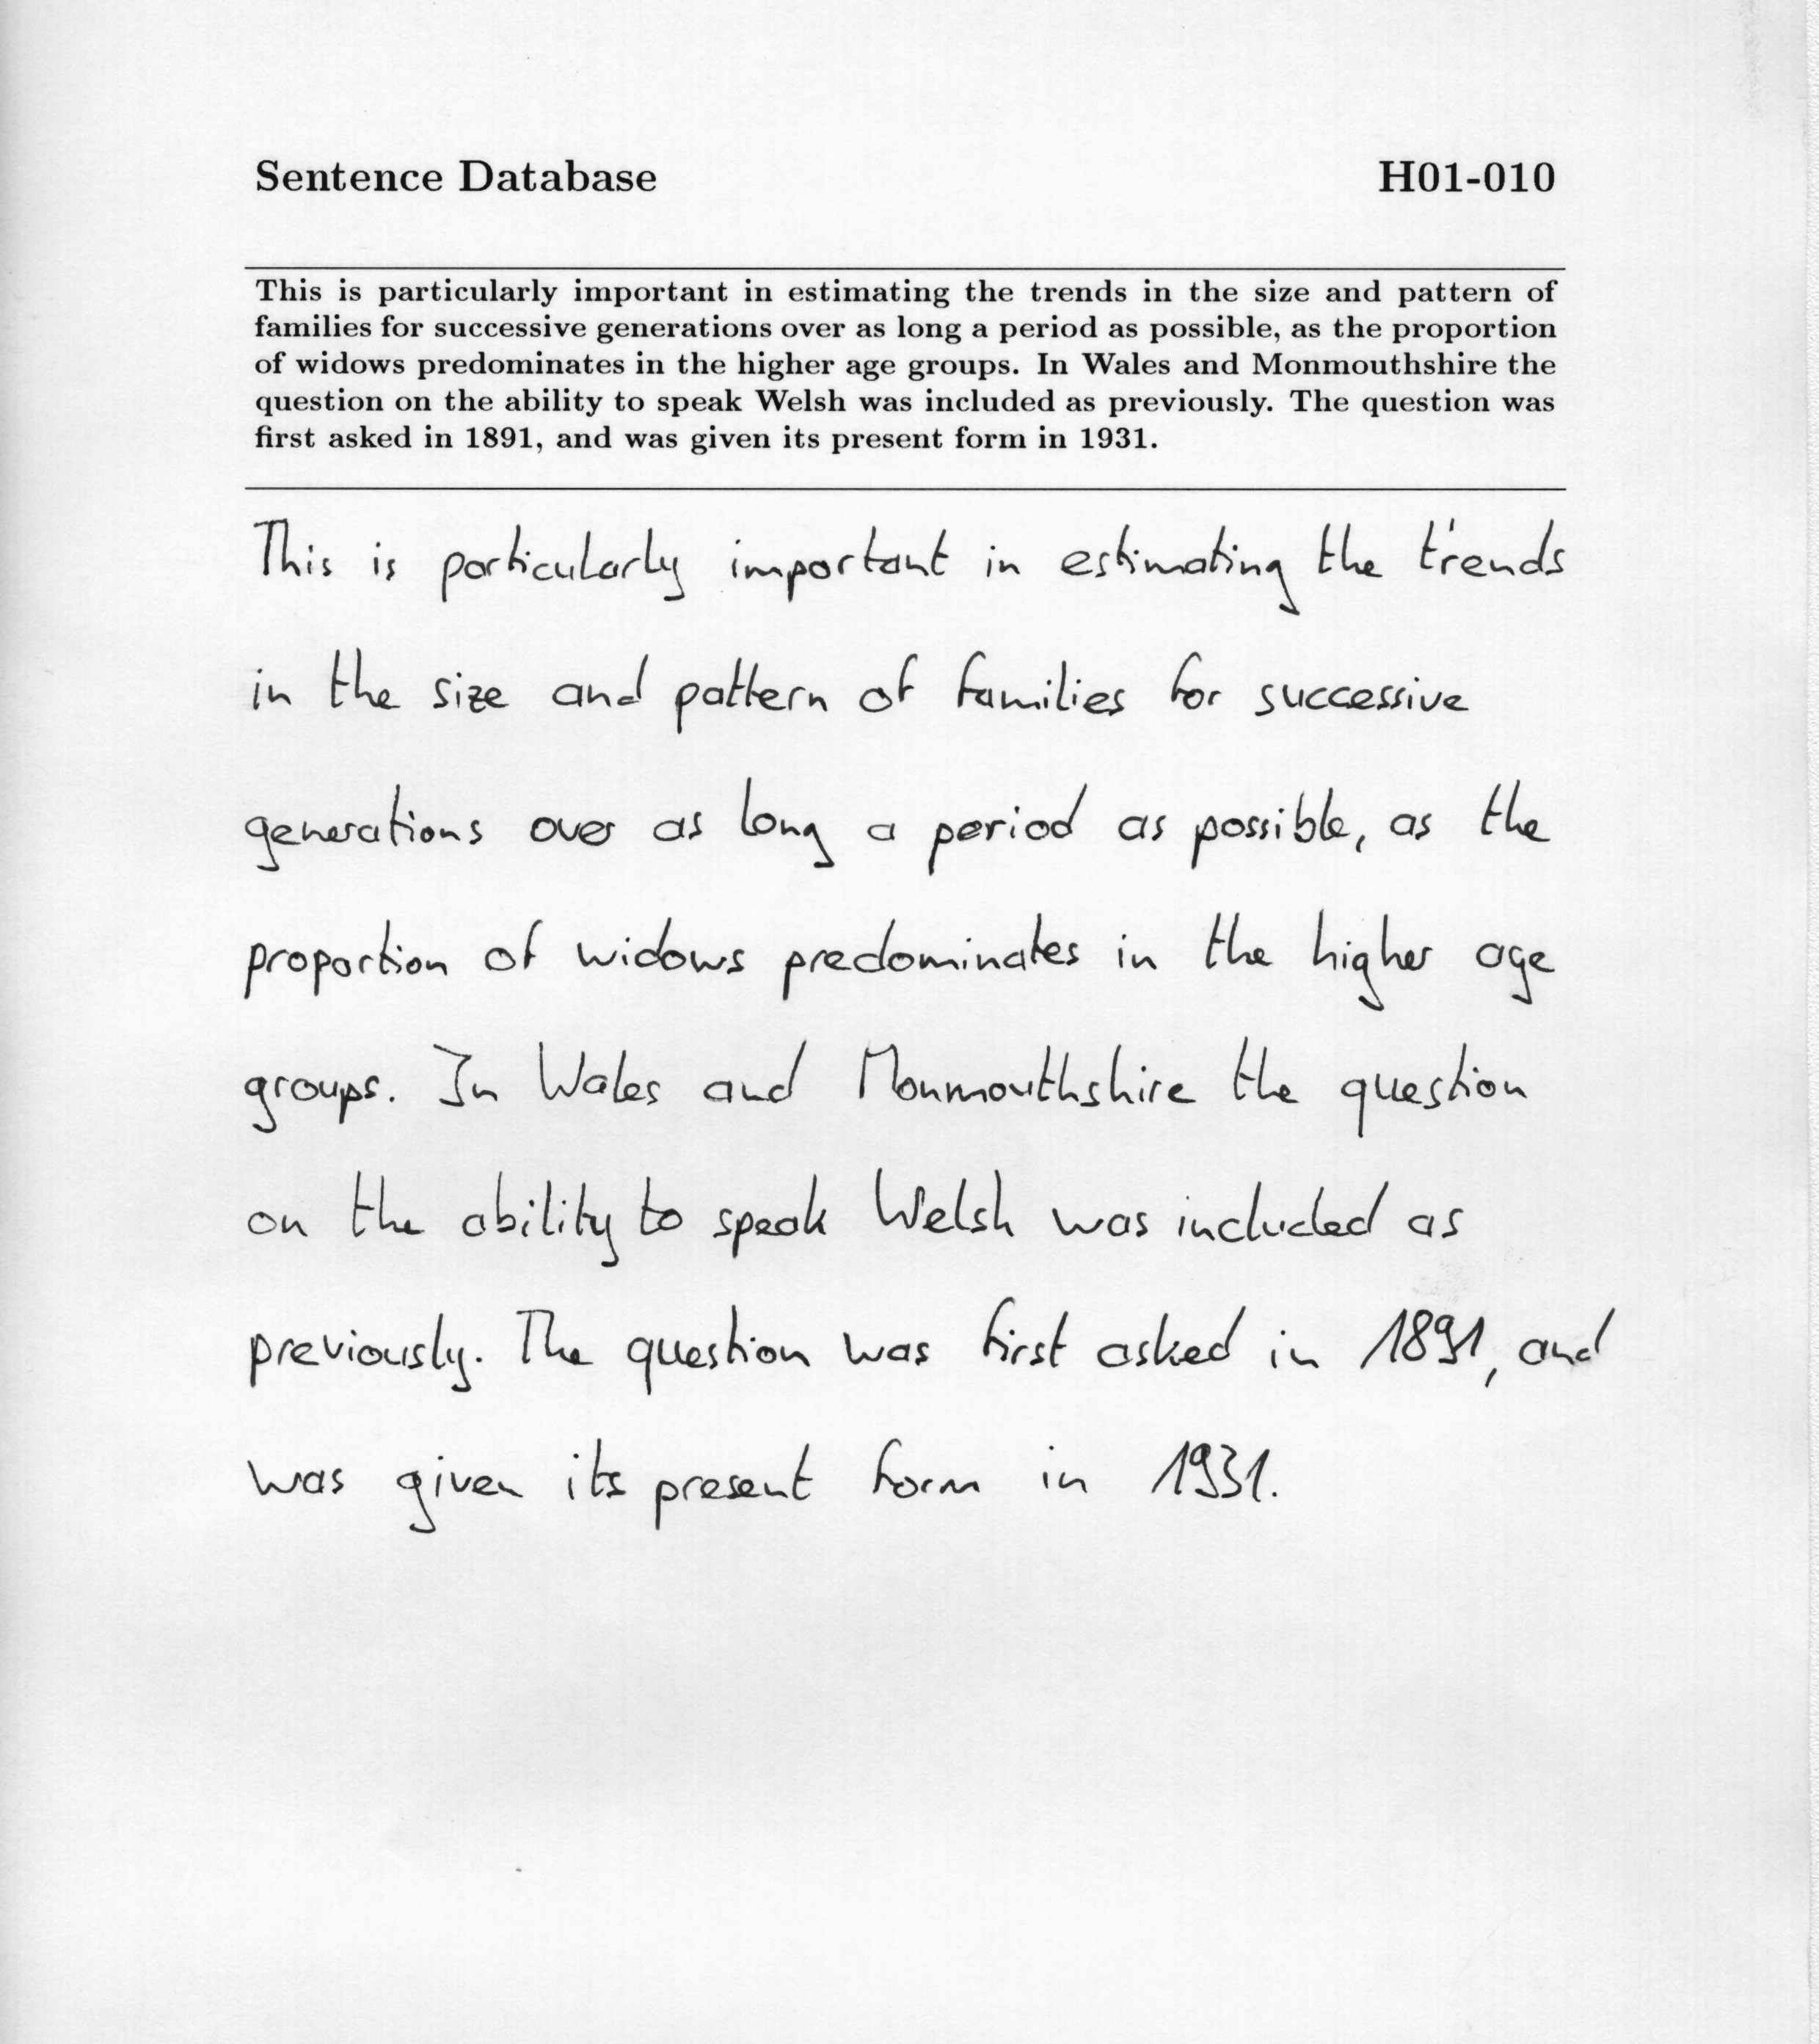 Sentence Database H01-010
This is particularly important in estimating the trends in the size and pattern of
families for successive generations over as long a period as possible, as the proportion
of widows predominates in the higher age groups. In Wales and Monmouthshire the
question on the ability to speak Welsh was included as previously. The question was
first asked in 1891, and was given its present form in 1931.
This is particularly important in estimating the trends
in the size and pattern of families for successive
generations over as long a period as possible, as the
proportion of widows predominates in the higher age
groups. In Wales and Monmouthshire the question
on the ability to speak Welsh was included as
previously. The question was first asked in 1891, and
was given its present form in 1931.